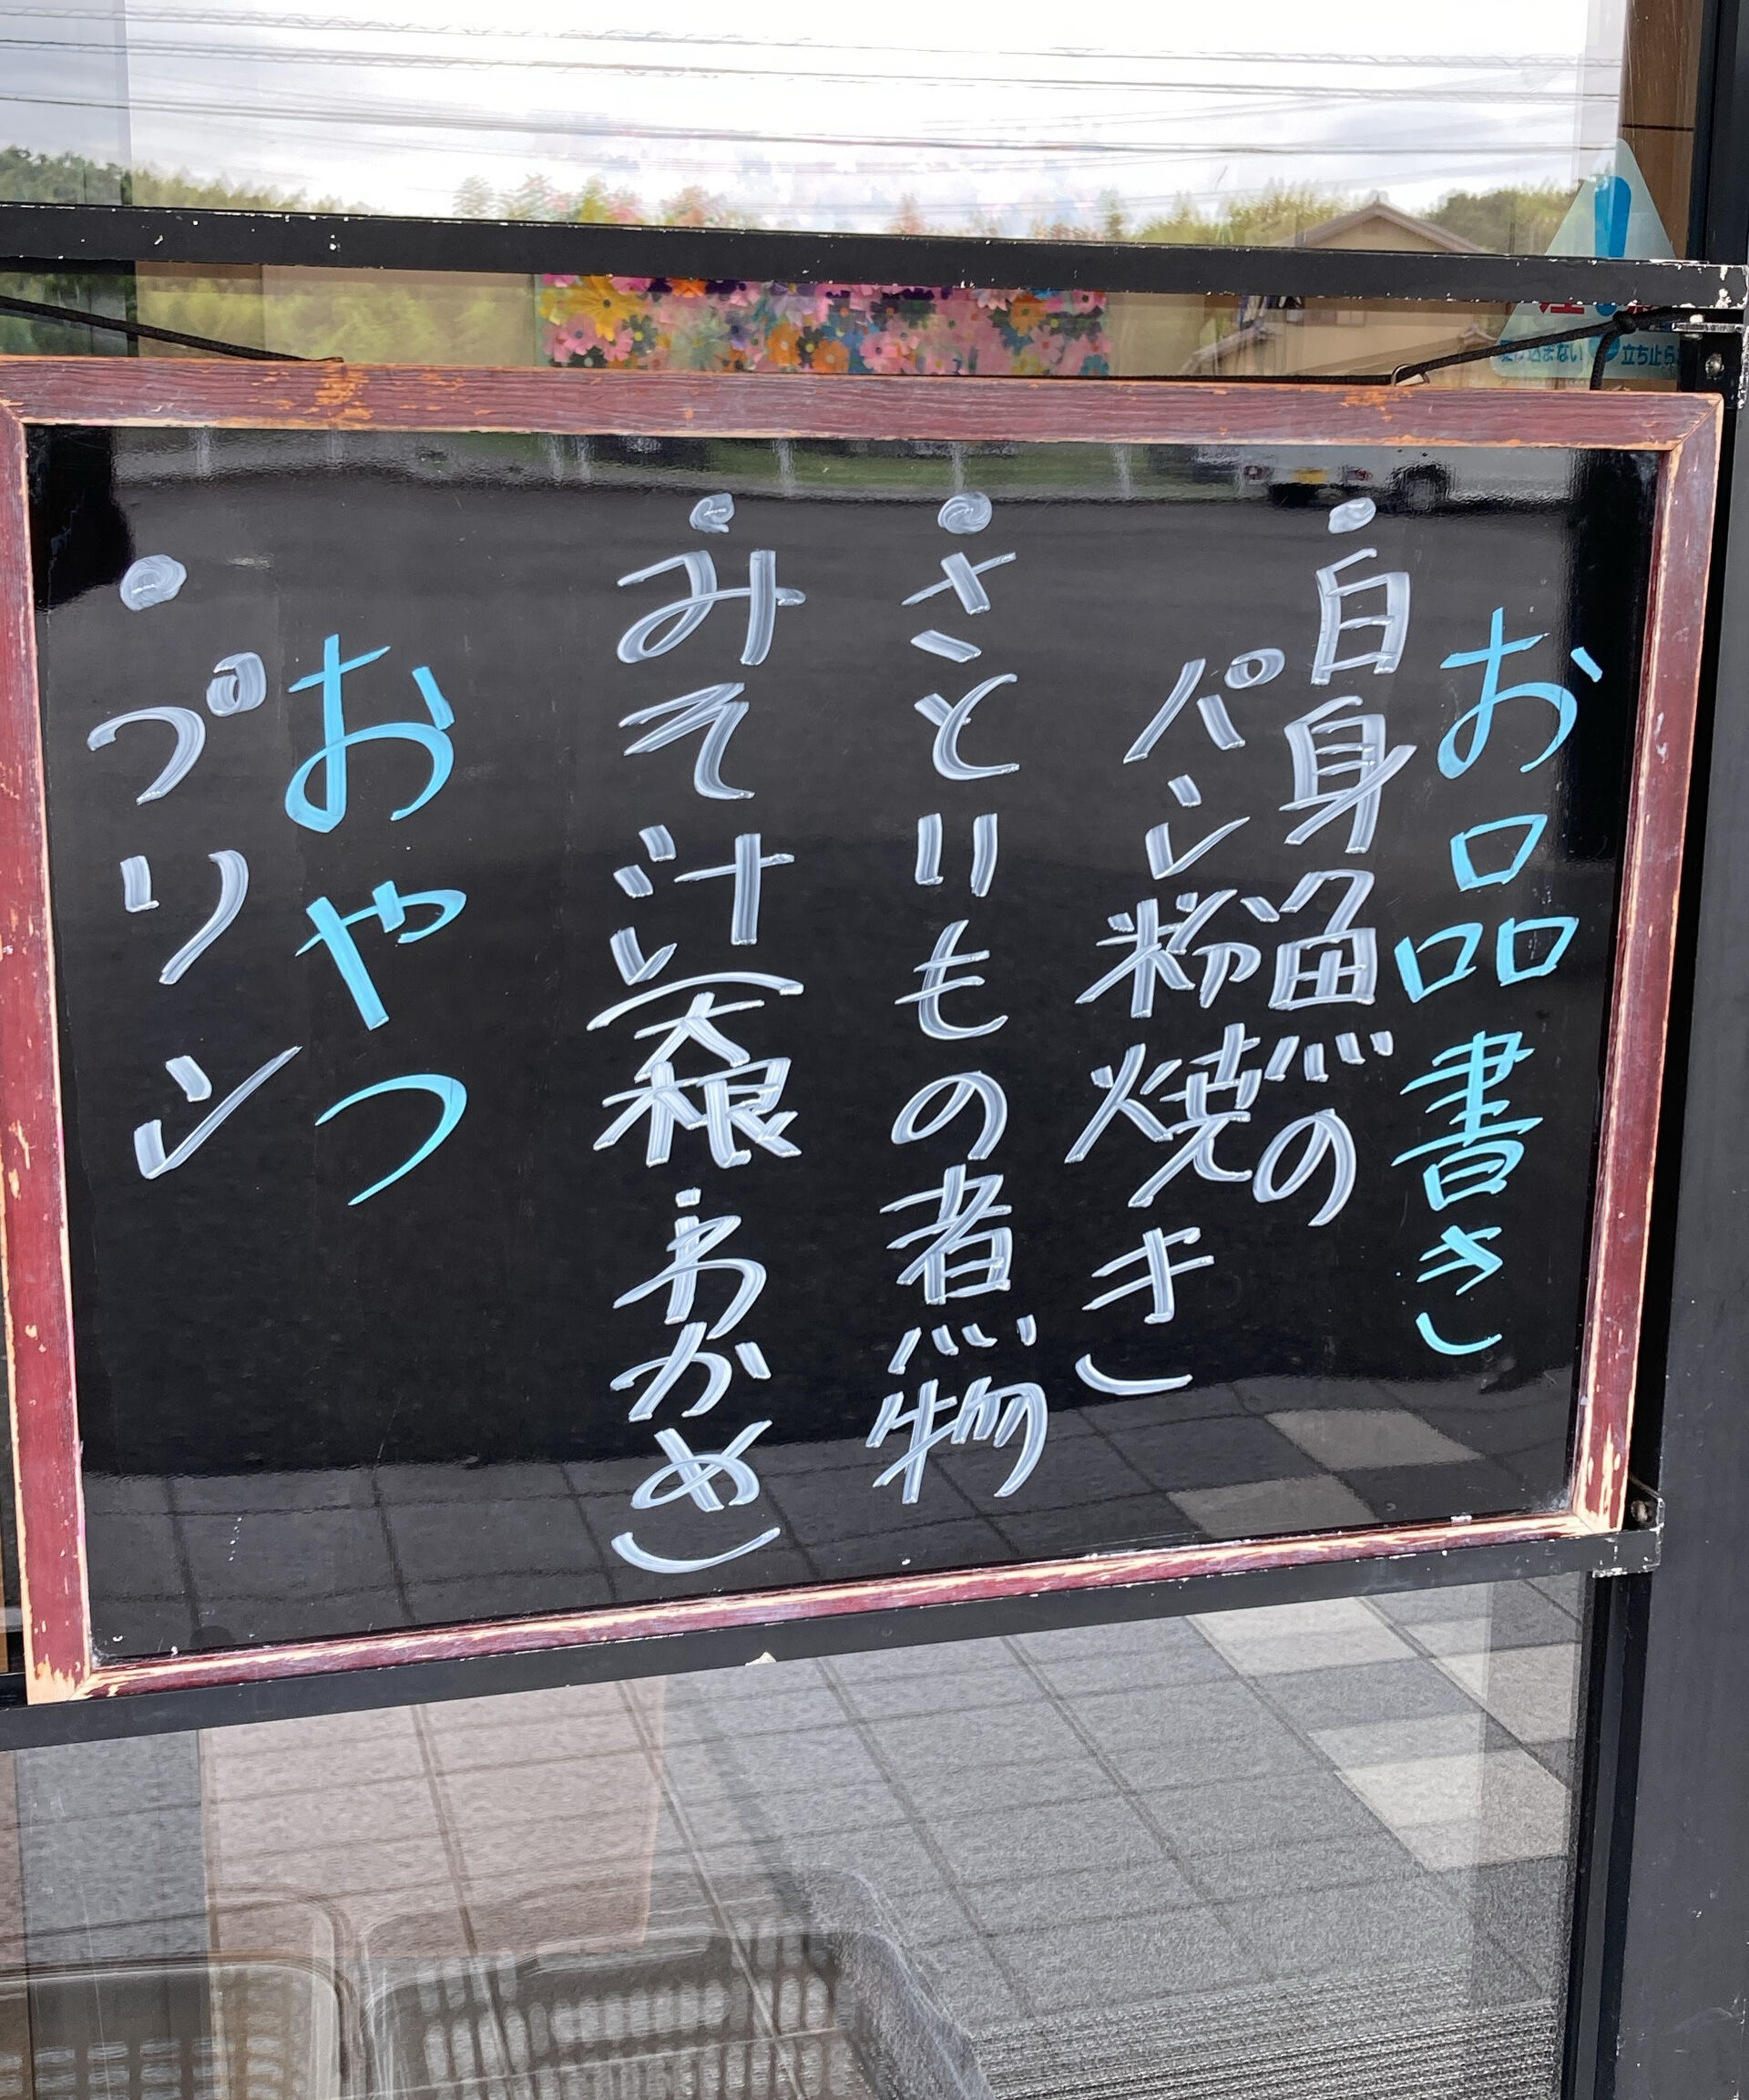 お品書き
・白身魚の
パン粉焼き
・さといもの煮物
・みそ汁(大根・わかめ)
おやつ
・プリン
立ち止ら